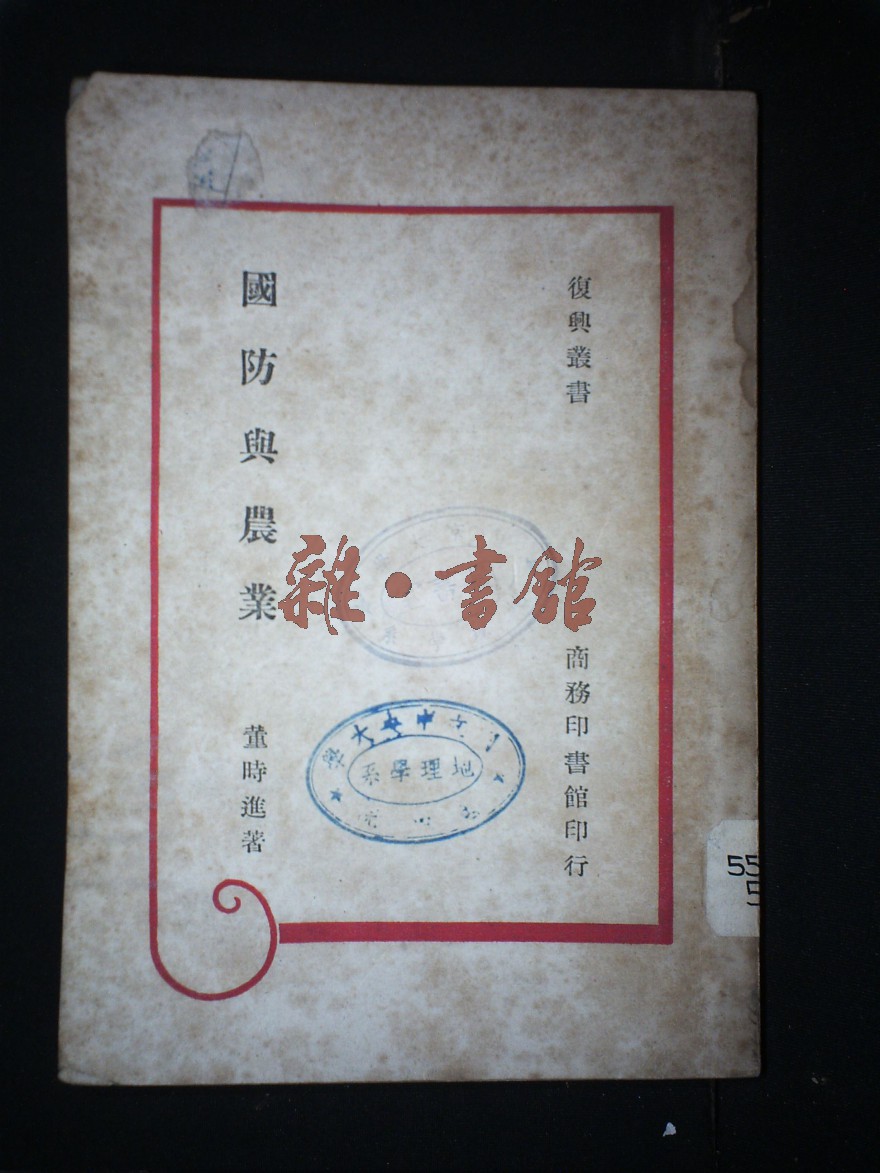 復興叢書
商務印書館印行
國防與農業
董時進著
雜·書館
中央大學
地理學系
55
5